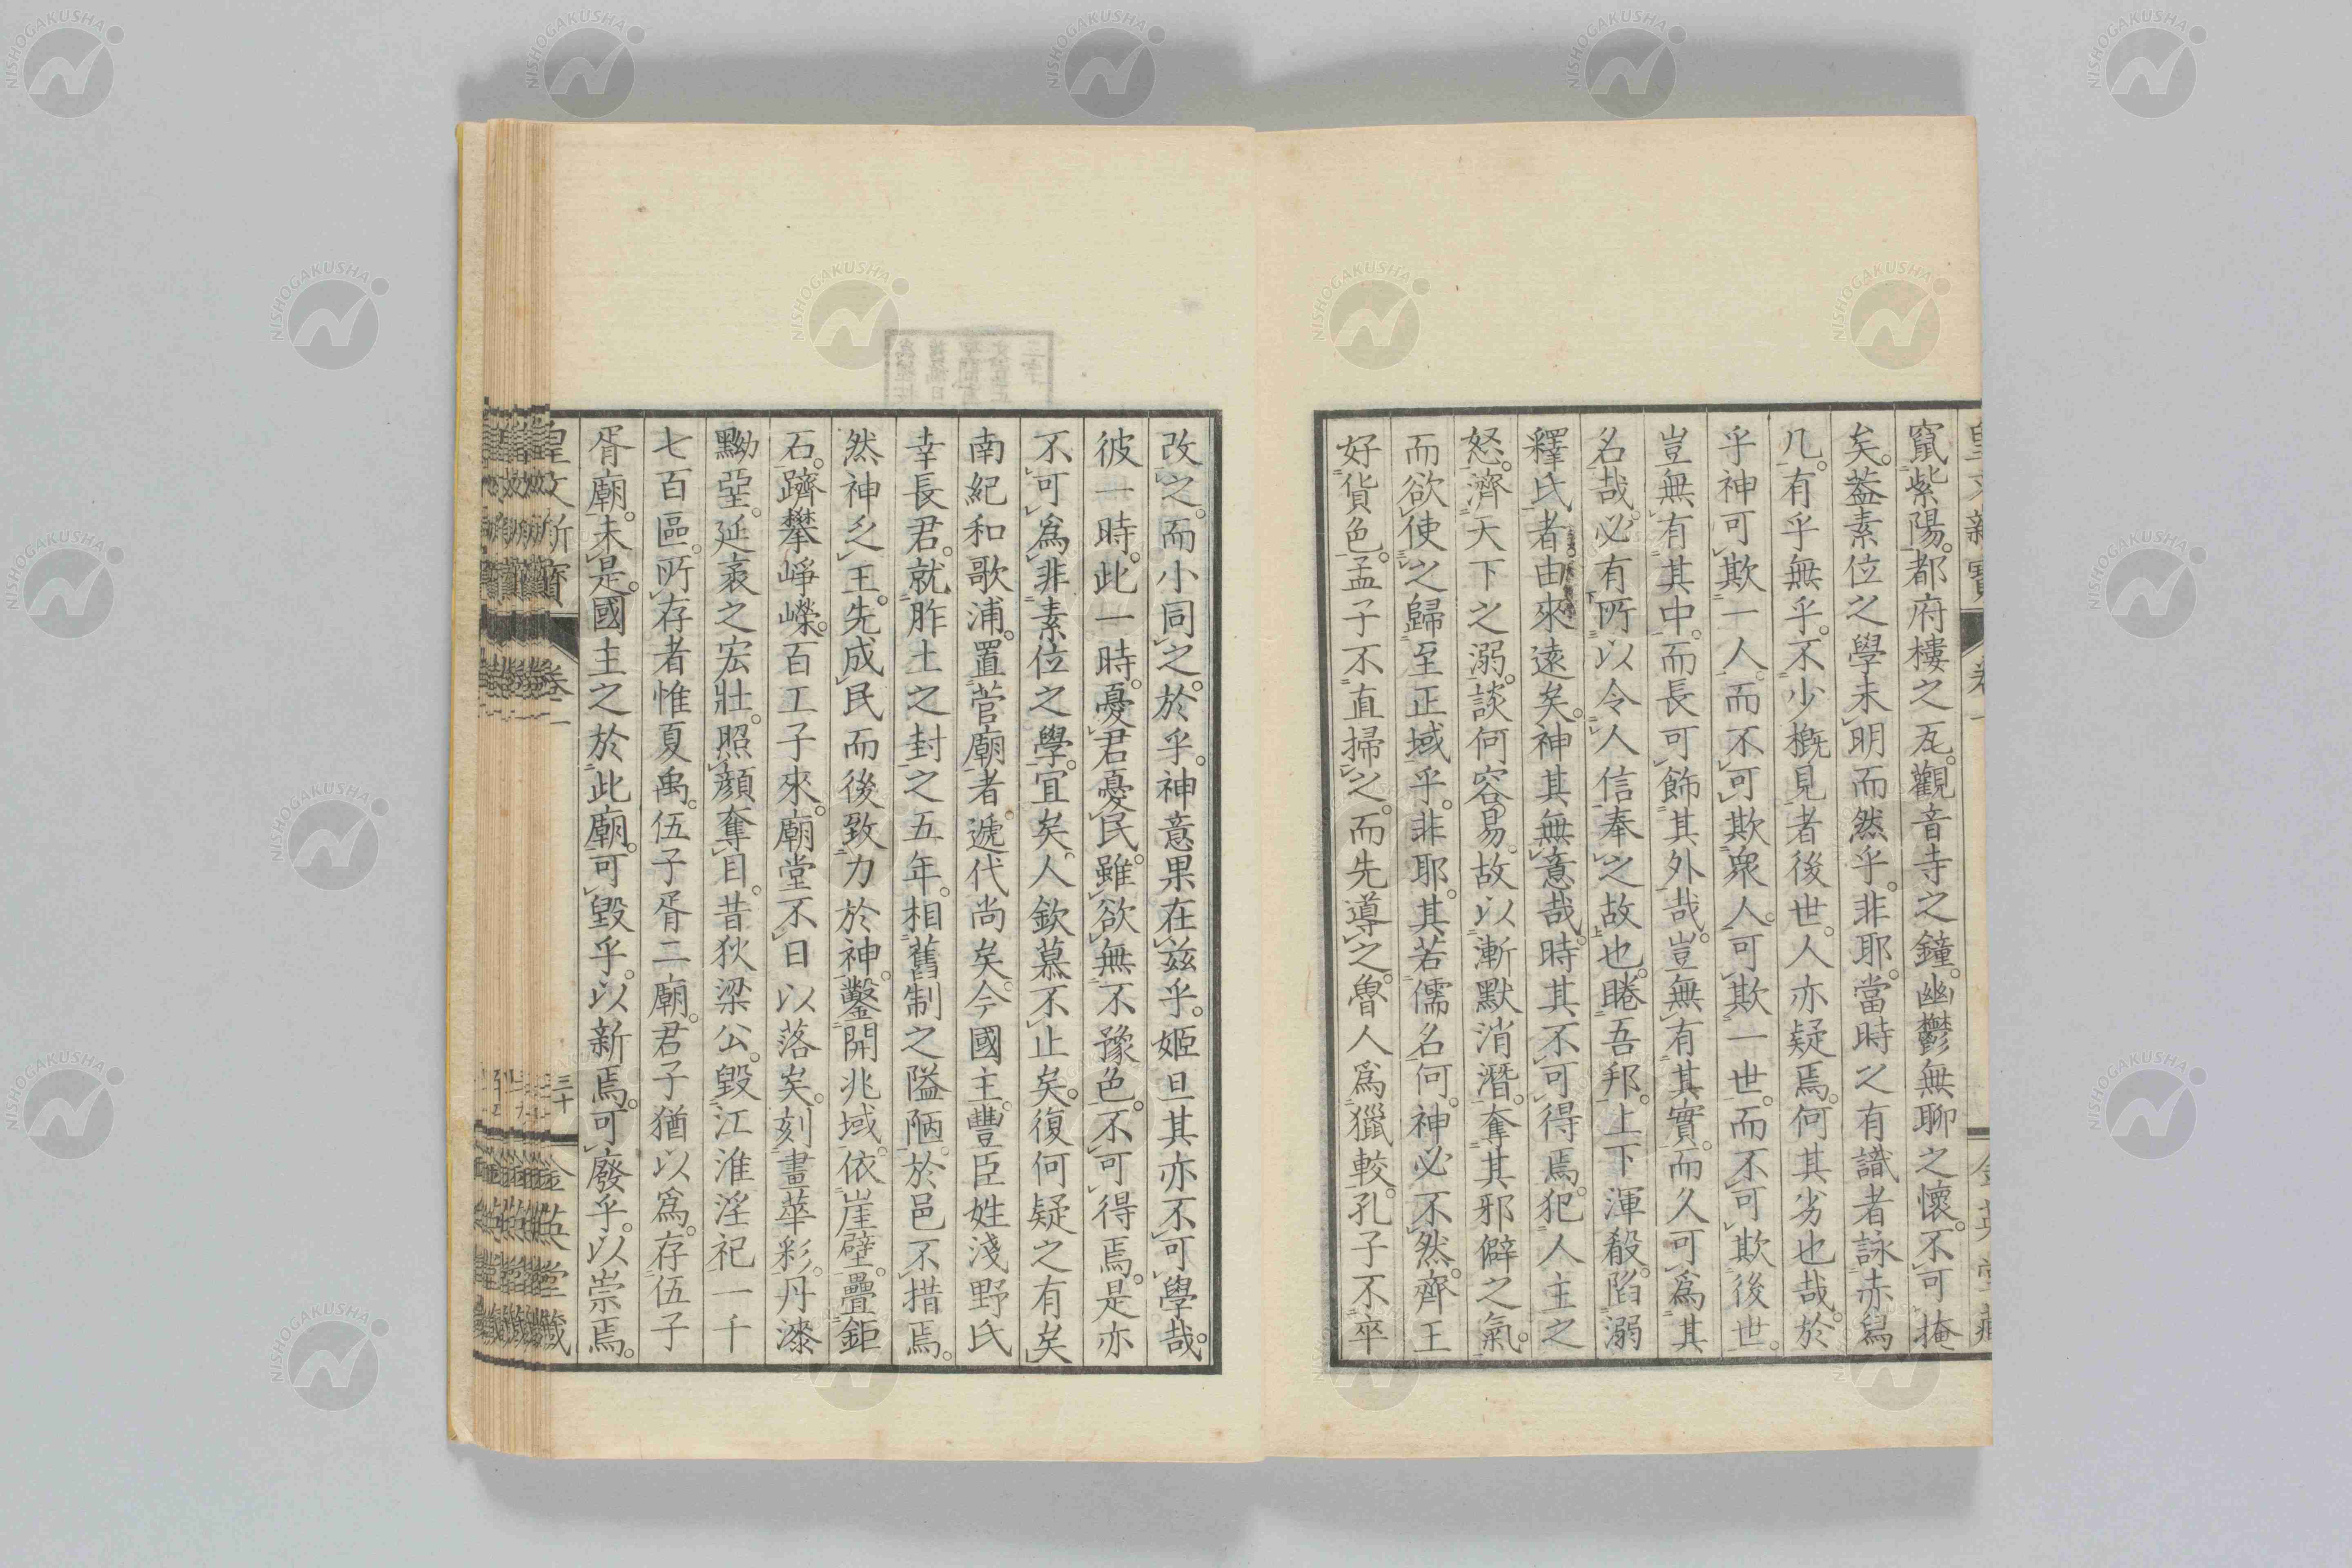 竄紫陽。都府樓之瓦。觀音寺之鐘。幽鬱無聊之懷。不可掩
矣。蓋素位之學未明而然乎。非耶。當時之有識者詠赤舃
几。有乎無乎。不少概見者後世。人亦疑焉。何其劣也哉。於
乎神可欺一人。而不可欺衆人。可欺一世。而不可欺後世。
豈無有其中。而長可飾其外哉。豈無有其實。而久可爲其
名哉。必有所以令人信奉之故也。睠吾邦。上下渾殽。陷溺
釋氏者由來遠矣。神其無意哉。時其不可得焉。犯人主之
怒。濟天下之溺。談何容易。故以漸默消潛。奪其邪僻之氣。
而欲使之歸至正域乎。非耶。其若儒名何。神必不然。齊王
好貨色。孟子不直掃之。而先導之。魯人爲獵較。孔子不卒
改之。而小同之。於乎。神意果在茲乎。姬旦其亦不可學哉。
彼一時。此一時。憂君憂民。雖欲無不豫色。不可得焉。是亦
不可爲非素位之學。宜矣。人欽慕不止矣。復何疑之有矣
南紀和歌浦。置菅廟者。遞代尚矣。今國主。豐臣姓淺野氏
幸長君。就胙土之封之五年。相舊制之隘陋。於邑不措焉。
然神之王。先成民而後致力於神。鑿開兆域。依崖壁。疊鉅
石。躋攀崢嶸。百工子來。廟堂不日以落矣。刻畫華彩。丹漆
黝堊。延袤之宏壯。照顏奪目。昔狄梁公。毀江淮淫祀一千
七百區。所存者惟夏禹。伍子胥二廟。君子猶以爲。存伍子
胥廟。未是。國主之於此廟。可毀乎。以新焉。可廢乎。以崇焉。
皇文新寶
卷一
三十
金英堂藏
NISHOGAKUSHA